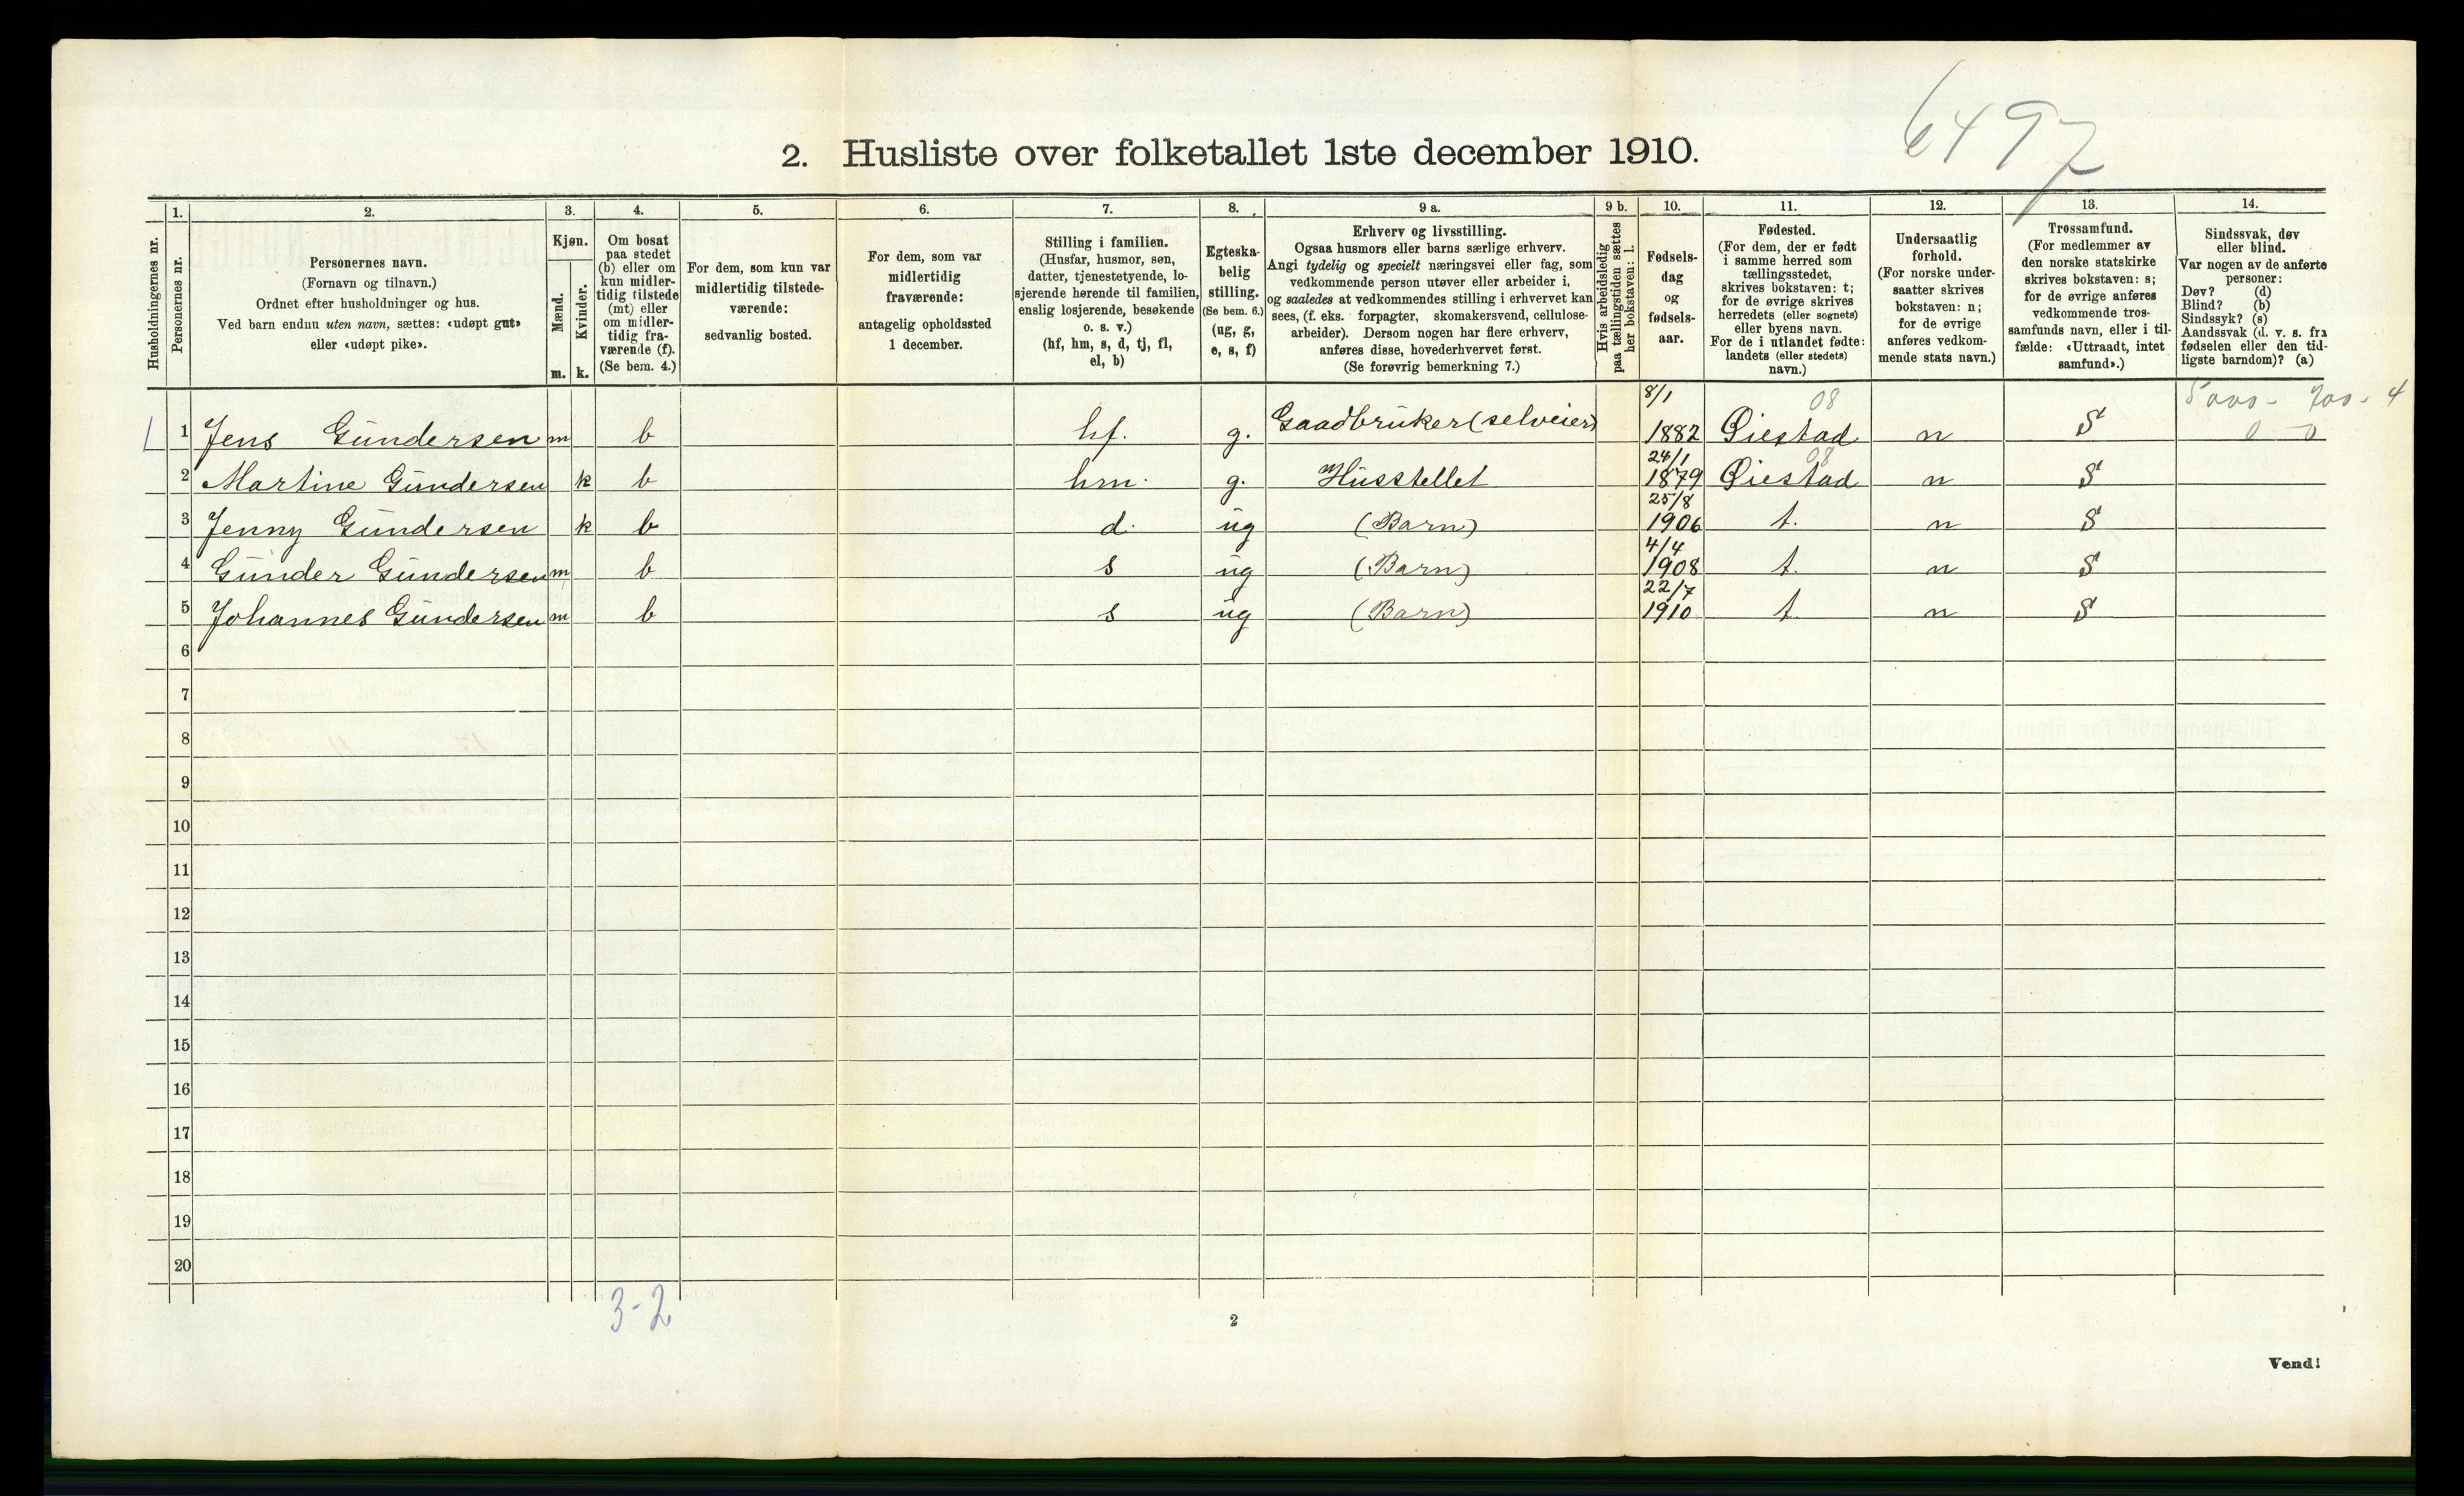 6497
2. Husliste over folketallet 1ste december 1910.
Husholdningernes nr.
1.
Personernes nr.
2.
Personernes navn.
(Fornavn og tilnavn.)
Ordnet efter husholdninger og hus.
Ved barn endnu uten navn, sættes: «udøpt gut»
eller «udøpt pike».
3.
Kjøn.
Mænd.
Kvinder.
m. k.
4.
Om bosat
paa stedet
(b) eller om
kun midler-
tidig tilstede
(mt) eller
om midler-
tidig fra-
værende (f).
(Se bem. 4.)
5.
For dem, som kun var
midlertidig tilstede-
værende:
sedvanlig bosted.
6.
For dem, som var
midlertidig
fraværende:
antagelig opholdssted
1 december.
7.
Stilling i familien.
(Husfar, husmor, søn,
datter, tjenestetyende, lo-
sjerende hørende til familien,
enslig losjerende, besøkende
o. s. v.)
(hf, hm, s, d, tj, fl,
el, b)
8.
Egteska-
belig
stilling.
(Se bem. 6.)
(ug, g,
e, s, f)
9 a.
Erhverv og livsstilling.
Ogsaa husmors eller barns særlige erhverv.
Angi tydelig og specielt næringsvei eller fag, som
vedkommende person utøver eller arbeider i,
og saaledes at vedkommendes stilling i erhvervet kan
sees, (f. eks. forpagter, skomakersvend, cellulose-
arbeider). Dersom nogen har flere erhverv,
anføres disse, hovederhvervet først.
(Se forøvrig bemerkning 7.)
9 b.
Hvis arbeidsledig
paa tællingstiden sættes
her bokstaven: l.
10.
Fødsels-
dag
og
fødsels-
aar.
11.
Fødested.
(For dem, der er født
i samme herred som
tællingsstedet,
skrives bokstaven: t;
for de øvrige skrives
herredets (eller sognets)
eller byens navn.
For de i utlandet fødte:
landets (eller stedets)
navn.)
12.
Undersaatlig
forhold.
(For norske under-
saatter skrives
bokstaven: n;
for de øvrige
anføres vedkom-
mende stats navn.)
13.
Trossamfund.
(For medlemmer av
den norske statskirke
skrives bokstaven: s;
for de øvrige anføres
vedkommende tros-
samfunds navn, eller i til-
fælde: «Uttraadt, intet
samfund».)
14.
Sindssvak, døv
eller blind.
Var nogen av de anførte
personer:
Døv? (d)
Blind? (b)
Sindssyk? (s)
Aandssvak (d. v. s. fra
fødselen eller den tid-
ligste barndom)? (a)
8/1 08
1 Jens Gundersen m b hf. g. Gaadbruker (selveier) 1882 Øiestad n S 0 0
24/1 08
2 Martine Gundersen k b hm. g. Husstellet 1879 Øiestad n S
25/8
3 Jenny Gundersen k b d. ug (Barn) 1906 t. n S
4/4
4 Gunder Gundersen m b s ug (Barn) 1908 t. n S
22/7
5 Johannes Gundersen m b s ug (Barn) 1910 t. n S
6
7
8
9
10
11
12
13
14
15
16
17
18
19
20
3-2
2
Vend!